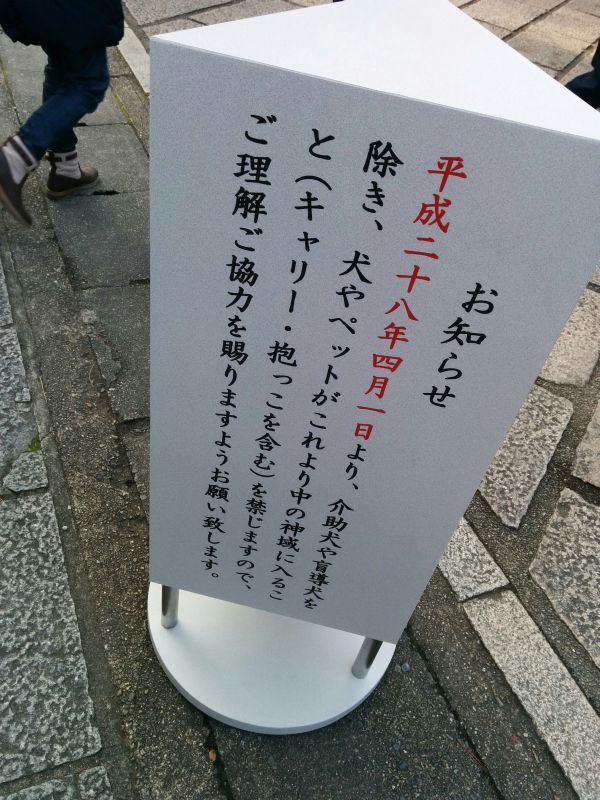 お知らせ
平成二十八年四月一日より、介助犬や盲導犬を
除き、犬やペットがこれより中の神域に入るこ
と(キャリー・抱っこを含む)を禁じますので、
ご理解ご協力を賜りますようお願い致します。